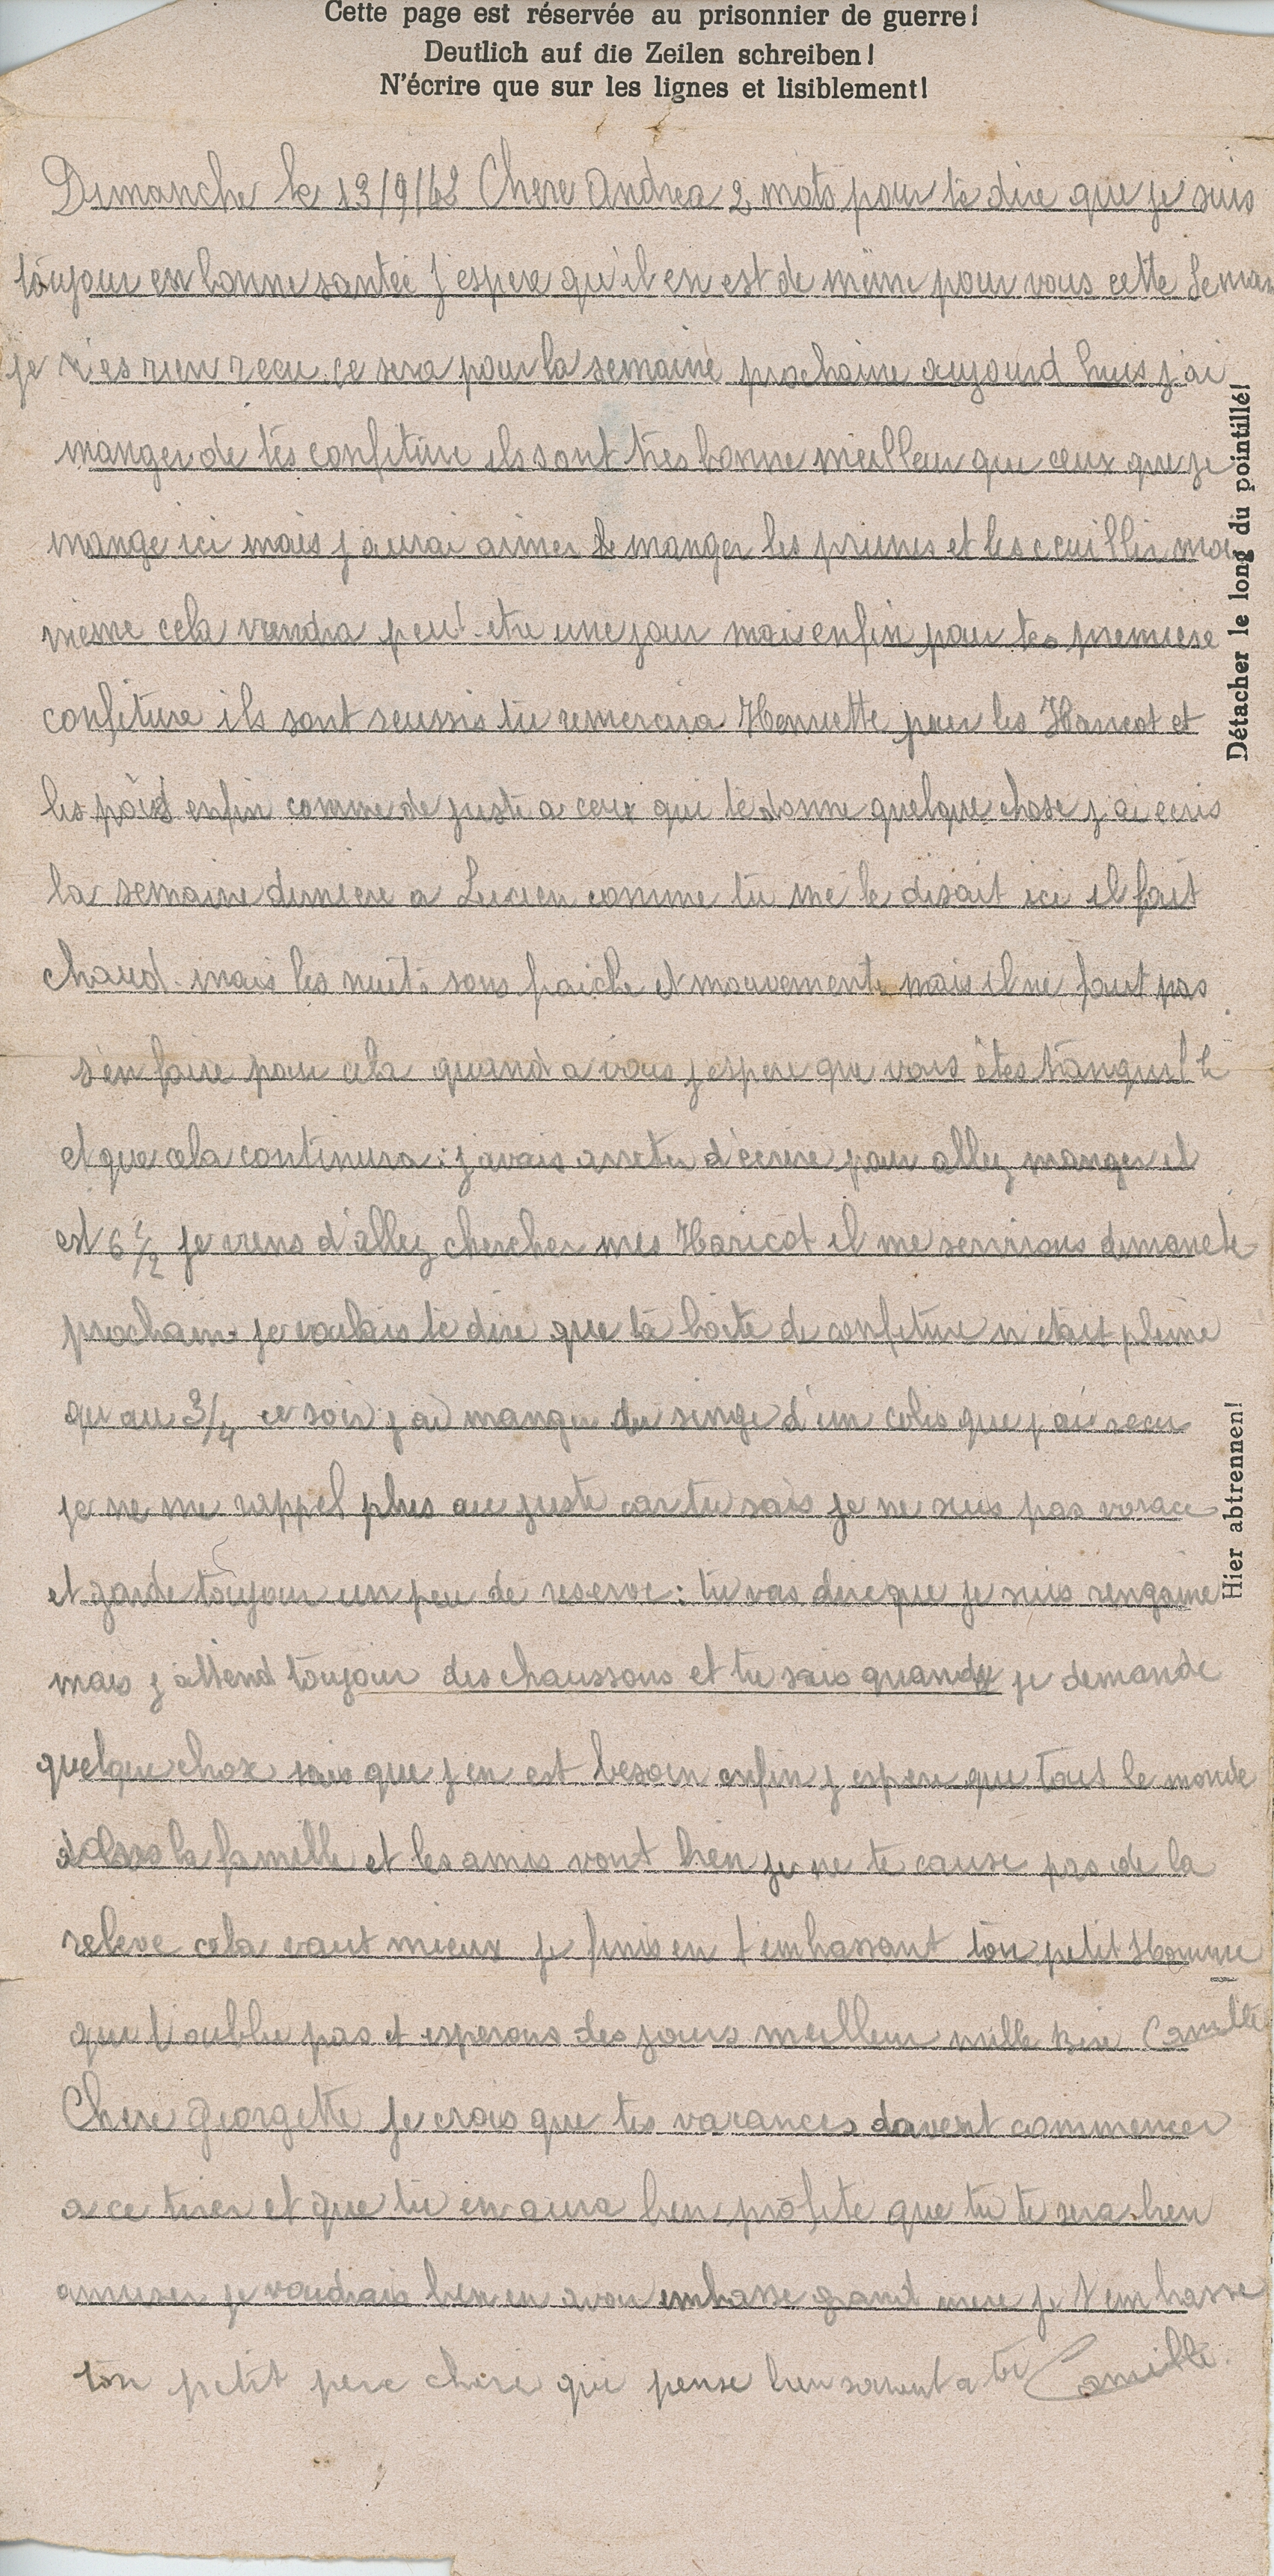 Cette page est réservée au prisonnier de guerre!
Deutlich auf die Zeilen schreiben!
N'écrire que sur les lignes et lisiblement!
Dimanche le 13/9/42 Chere Andrea 2 mots pour te dire que je suis
toujour en bonne santée j'espere qu'il en est de même pour vous cette Seman
je n'es rien recu. ce sera pour la semaine prochaine aujourd huis j'ai
manger de tes confiture ils sont très bonne meilleur que ceux que je
mange ici mais j'aurai aimer manger les prunes et les ceuillir moi
meme cela viendra peut-etre une jour mais enfin pour tes premiere
confiture ils sont reussis tu remercira Henriette pour les Haricot et
les pois enfin comme de juste a ceux qui te donne quelque chose j'ai ecris
la semaine derniere a Lucien comme tu me le disait ici il fait
chaud. mais les nuits sons fraiche et mouvemente mais il ne faut pas
s'en faire pour cela quand a vous j'espere que vous êtes tranquille
et que cela continura: j'avais arreter d'écrire pour allez manger il
est 6 1/2 je viens d'allez chercher mes Haricot il me servirons dimanche
prochain. je voulais te dire que ta boite de confiture n'etait pleine
qu'au 3/4 ce soir j'ai manger du singe d'un colis que j'ai recu
je ne me rappel plus au juste car tu sais je ne suis pas vorace
et garde toujour un peu de reserve: tu vas dire que je suis rengaine
mais j'attend toujour des chaussons et tu sais quand je demande
quelque chose sais que j'en est besoin enfin j'espere que tout le monde
la famille et les amis vont bien je ne te cause pas de la
releve cela vaut mieux je finis en t'embassant ton petit Homme
que t'oublie pas et esperons des jours meilleur mille bise Camille
Chere Georgette je crois que tes vacances doivent commencer
a ce tirer et que tu en aura bien profite que tu te sera bien
amuser je voudrais bien en avoir embasse grand mere je t'embasse
ton petit pere chere qui pense bien souvent a toi Camille.
Détacher le long du pointillé!
Hier abtrennen!